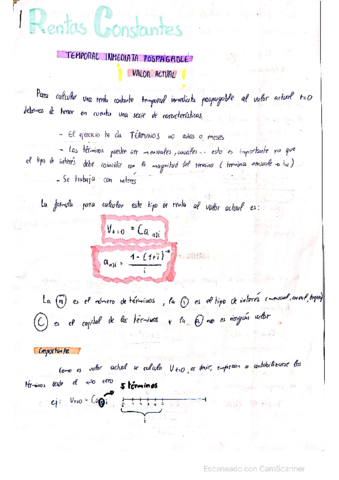 Rentas Constantes
TEMPORAL INMEDIATA POSPAGABLE
VALOR ACTUAL
Para calcular una renta constante temporal inmediata pospagable al valor actual t=0
debemos de tener en cuenta una serie de características.
- El ejercicio te da TÉRMINOS no años o meses
- Los términos pueden ser mensuales, anuales... esto es importante ya que
el tipo de interés debe coincidir con la magnitud del termino (termino
- Se trabaja con interés
La formula para calcular este tipo de renta al valor actual es:
Vt=0 = C a n⌉i
a n⌉i = 1-(1+i)⁻ⁿ / i
La (n) es el número de términos, la (i) es el tipo de interés
(C) es el capital de los términos y la (a) no es ningún valor
importante
Como es valor actual se calcula Vt=0, es decir, empiezan a contabilizarse los
términos desde el año cero
5 términos
ej: Vt=0 = Ca 5⌉i
0 1 2 3 4 5
i
Escaneado con CamScanner